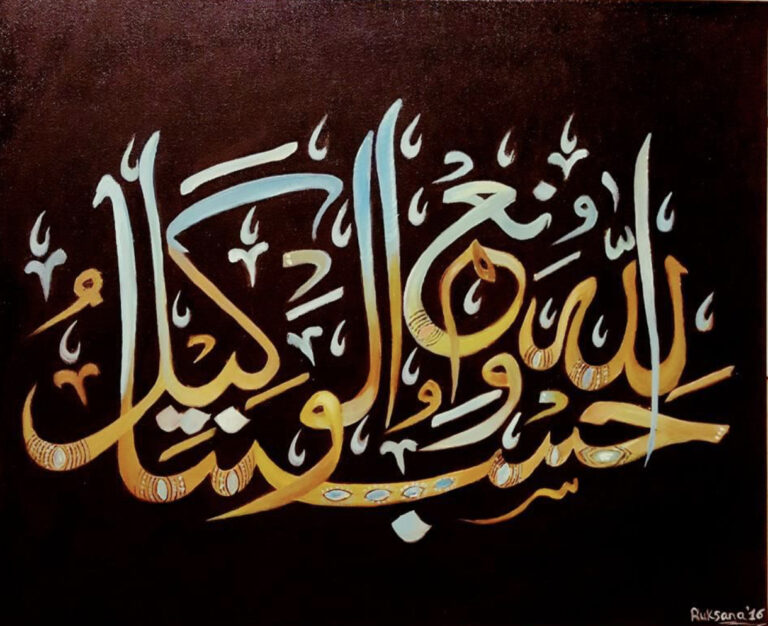 حَسْبُنَا اللّٰهُ وَنِعْمَ الْوَكِيلُ
Ruksana'16